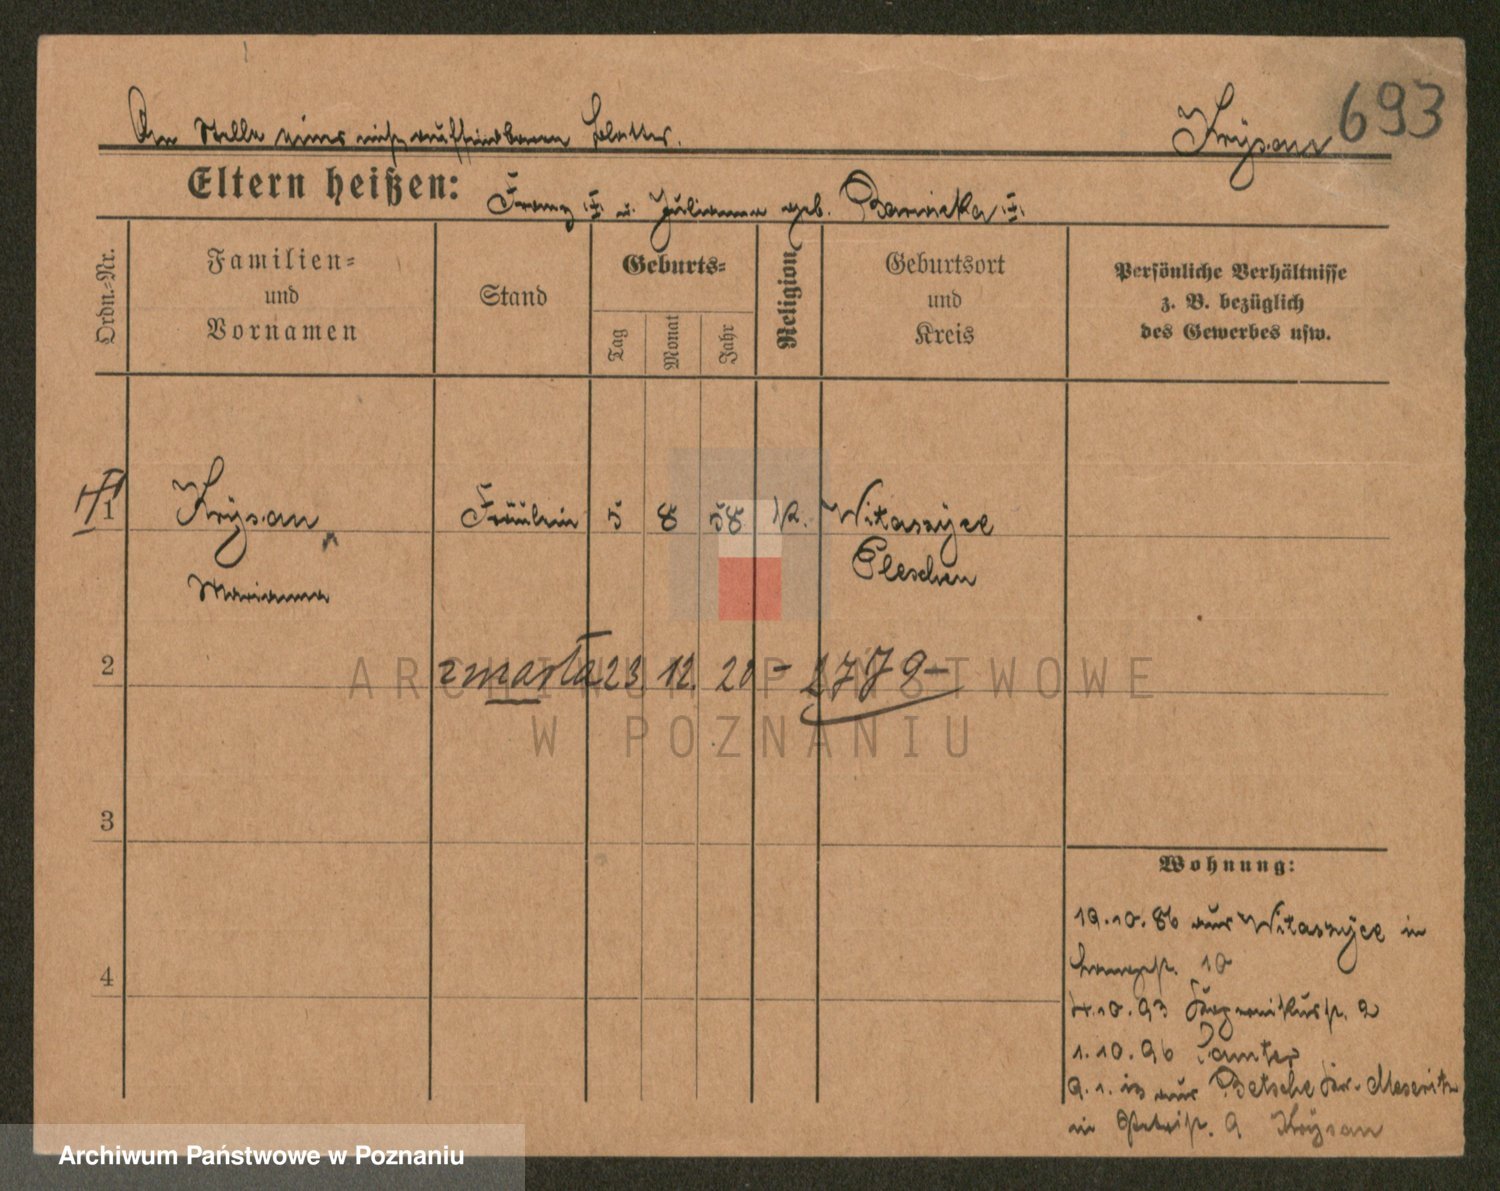 An Stelle eines nicht auffindbaren Blattes.
Krysan 693
Eltern heißen: Franz u. Julianna geb.
Ordn.-Nr.
Familien-
und
Vornamen
Stand
Geburts-
Tag
Monat
Jahr
Religion
Geburtsort
und
Kreis
Persönliche Verhältnisse
z. B. bezüglich
des Gewerbes usw.
1 Krysan Fräulein 5 8 58 k. Witaszyce
Marianna Pleschen
2 zmarła 23 12. 20 - 2779 -
3
4
Wohnung:
19.10.86 aus Witaszyce in
Langestr. 10
4.10.93 2
1.10.96 Samter
9.1. aus Betsche Kr. Meseritz
in Petristr. 9 Krysan
ARCHIWUM PAŃSTWOWE
W POZNANIU
Archiwum Państwowe w Poznaniu